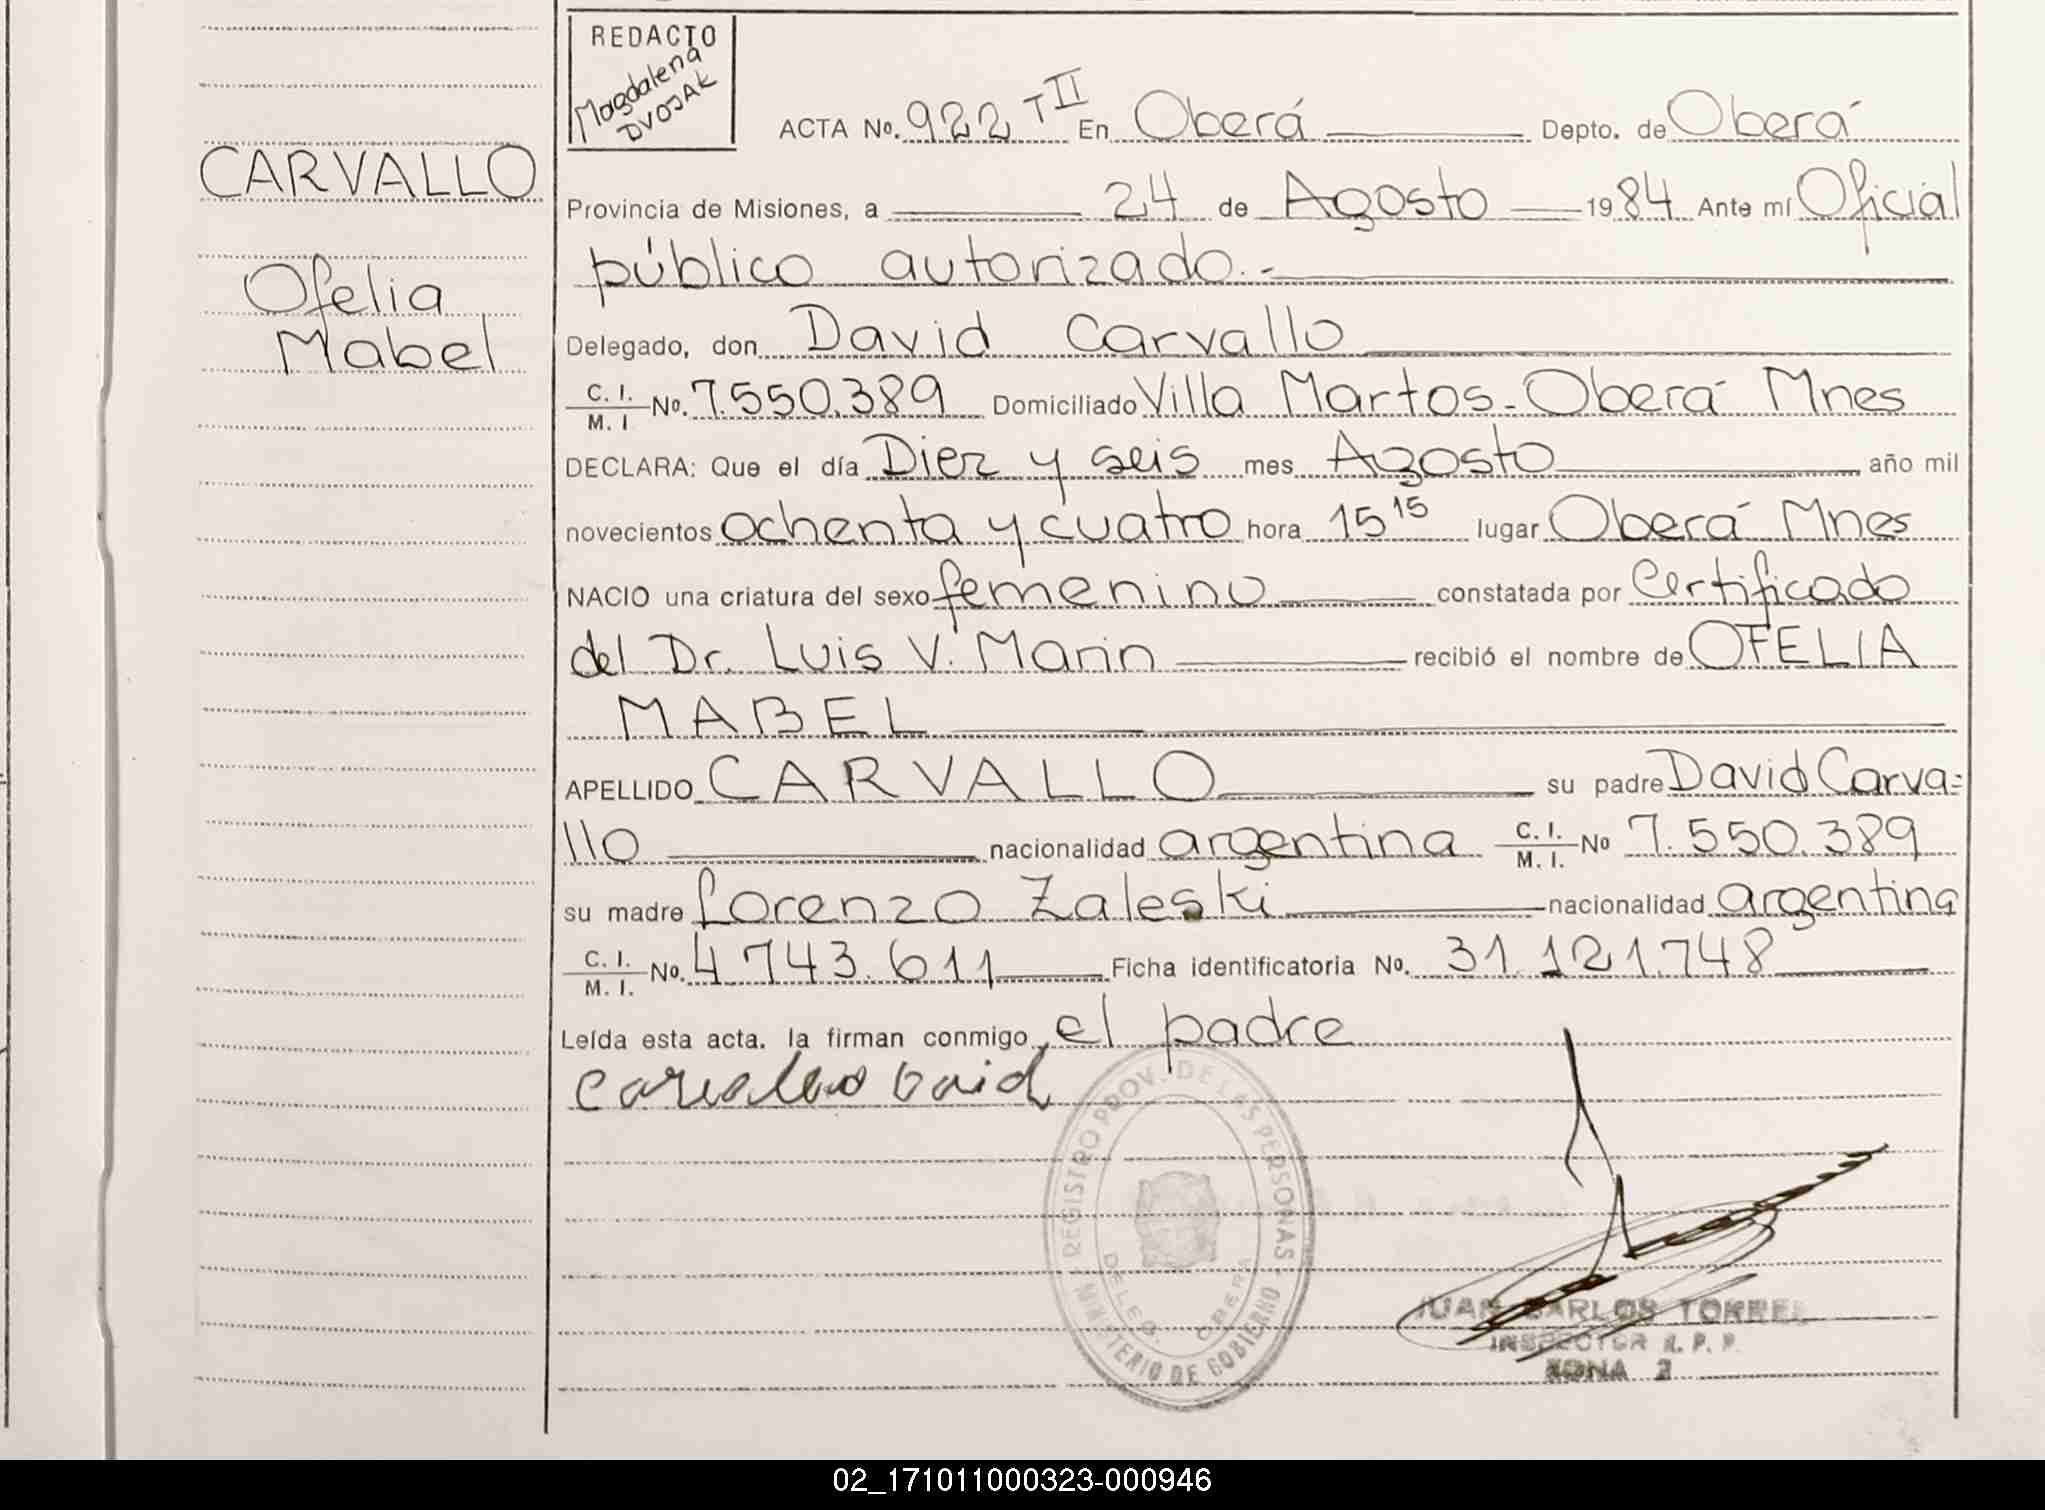 CARVALLO
Ofelia
Mabel
REDACTO
Magdalena
DVOJAK
ACTA No. 922 T II En Oberá Depto. de Oberá
Provincia de Misiones, a 24 de Agosto 1984 Ante mí Oficial
público autorizado.-
Delegado, don David Carvallo
C. I. / M. I No. 7.550.389 Domiciliado Villa Martos - Oberá Mnes
DECLARA: Que el día Diez y seis mes Agosto año mil
novecientos ochenta y cuatro hora 15 15 lugar Oberá Mnes
NACIO una criatura del sexo femenino constatada por Certificado
del Dr. Luis V. Marin recibió el nombre de OFELIA
MABEL
APELLIDO CARVALLO su padre David Carva=
llo nacionalidad argentina C. I. / M. I. No 7.550.389
su madre Lorenzo Zaleski nacionalidad argentina
C. I. / M. I. No. 4.743.611 Ficha identificatoria No. 31.121.748
Leída esta acta. la firman conmigo, el padre
Carvallo David
REGISTRO PROV. DE LAS PERSONAS
MINISTERIO DE GOBIERNO
DELEG. OBERA
JUAN CARLOS TORRES
INSPECTOR R. P. P.
ZONA 2
02_171011000323-000946